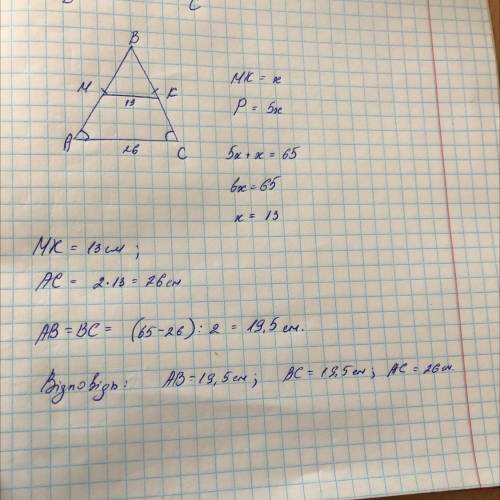 C
B
M K
13
A C
26
MK = x
P = 5x
5x + x = 65
6x = 65
x = 13
MK = 13 см ;
AC = 2·13 = 26 см
AB = BC = (65 - 26) : 2 = 19,5 см.
Відповідь: AB = 19,5 см ; BC = 19,5 см ; AC = 26 см.